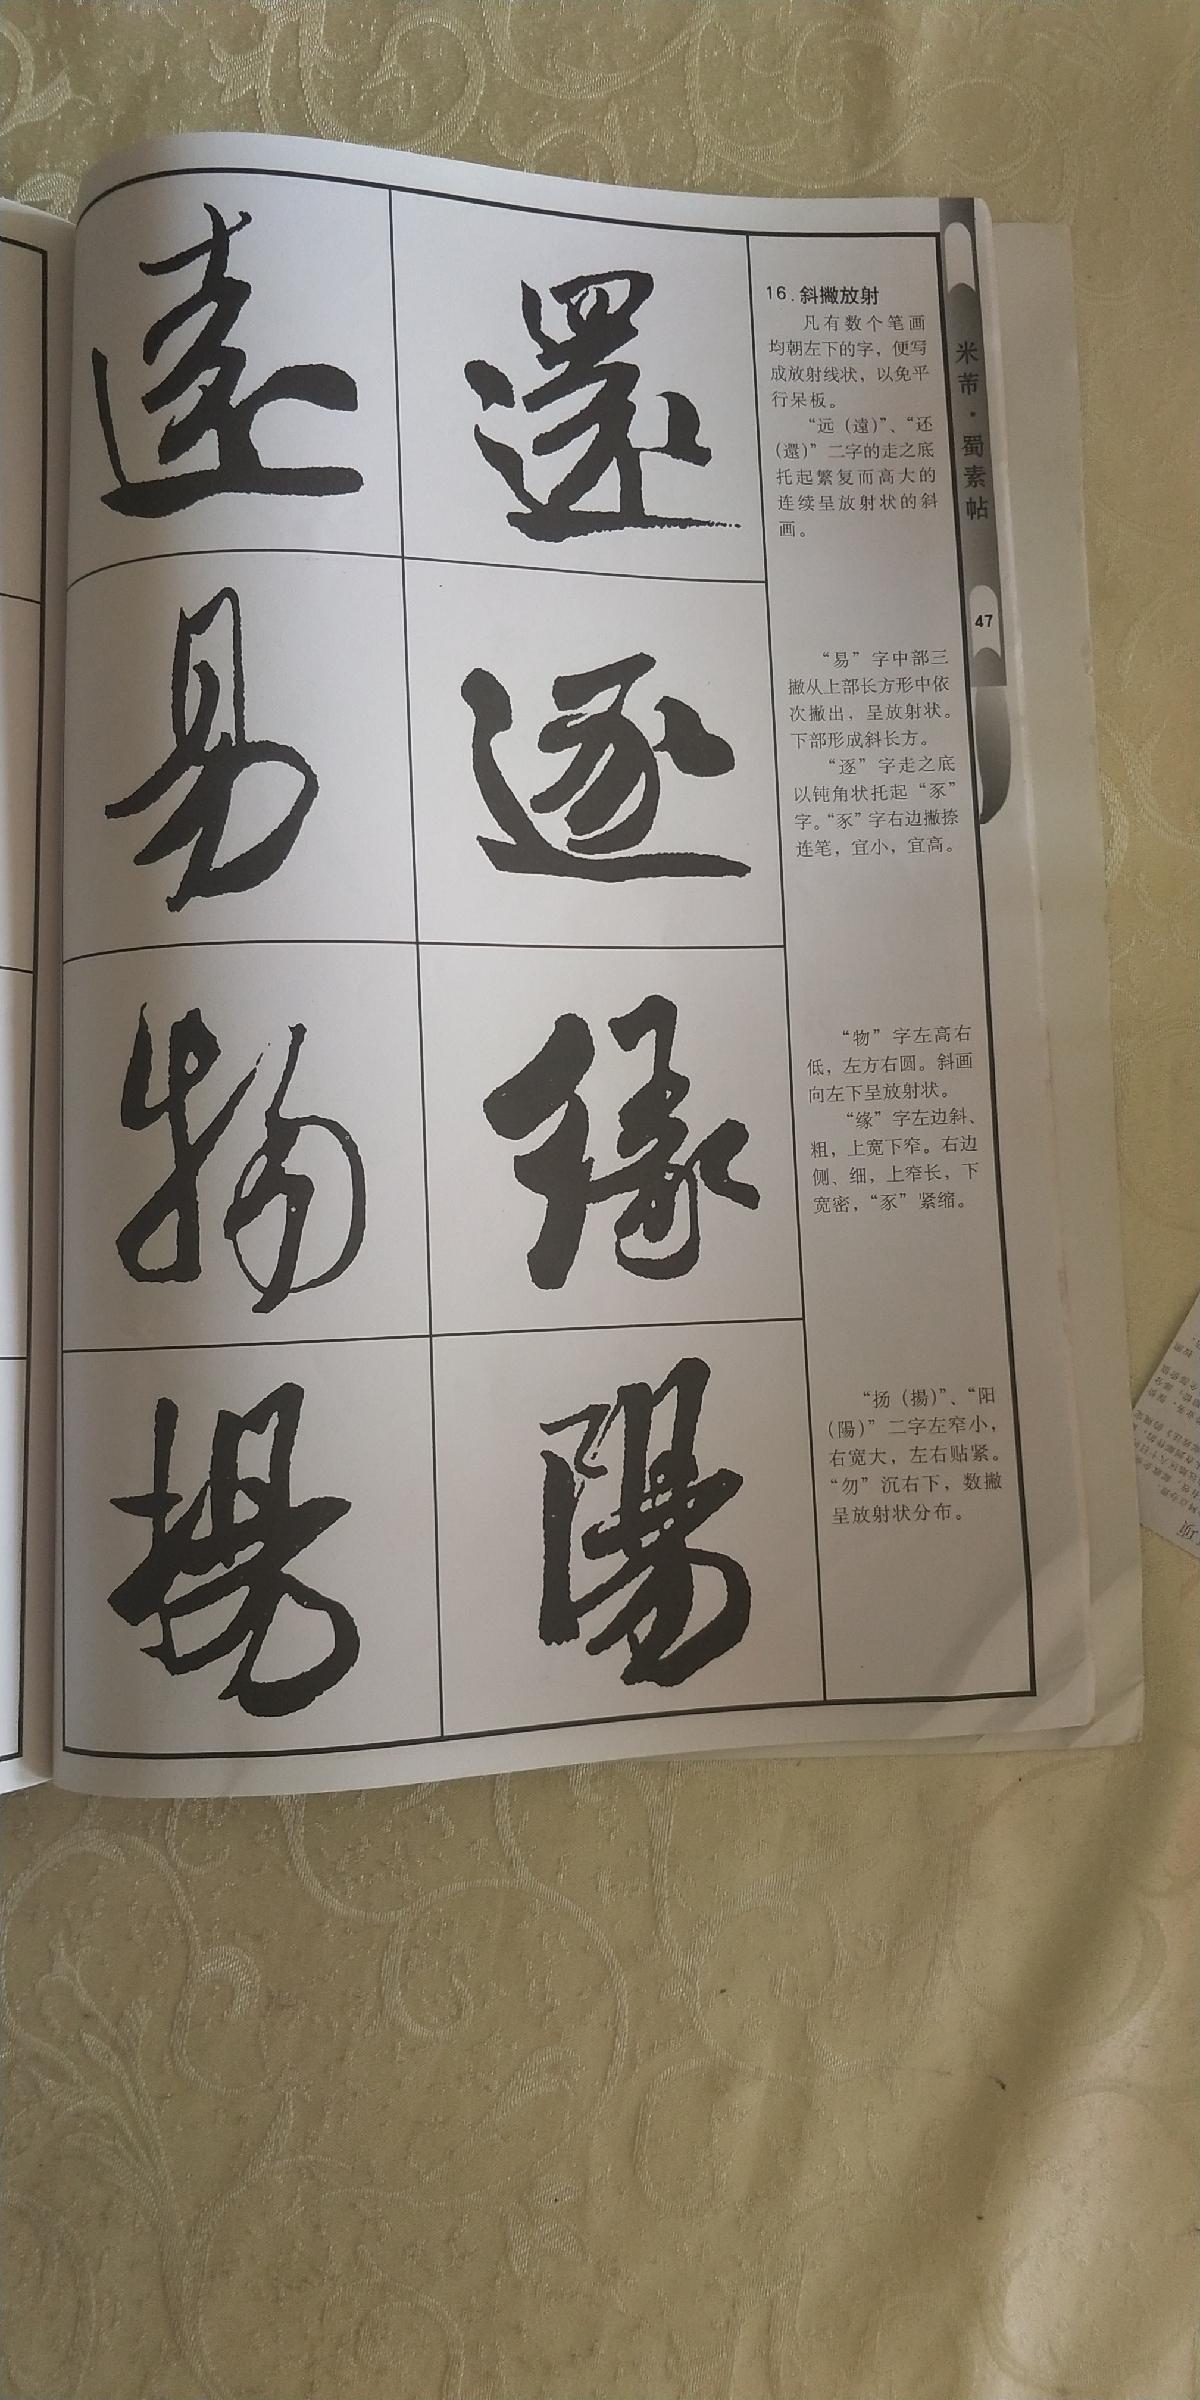 遠
還
易
逐
物
缘
揚
陽
16.斜撇放射
凡有数个笔画
均朝左下的字，便写
成放射线状，以免平
行呆板。
“远（遠）”、“还
（還）”二字的走之底
托起繁复而高大的
连续呈放射状的斜
画。
“易”字中部三
撇从上部长方形中依
次撇出，呈放射状。
下部形成斜长方。
“逐”字走之底
以钝角状托起“豕”
字。“豕”字右边撇捺
连笔，宜小，宜高。
“物”字左高右
低，左方右圆。斜画
向左下呈放射状。
“缘”字左边斜、
粗，上宽下窄。右边
侧、细，上窄长，下
宽密，“豕”紧缩。
“扬（揚）”、“阳
（陽）”二字左窄小，
右宽大，左右贴紧。
“勿”沉右下，数撇
呈放射状分布。
米芾·蜀素帖
47